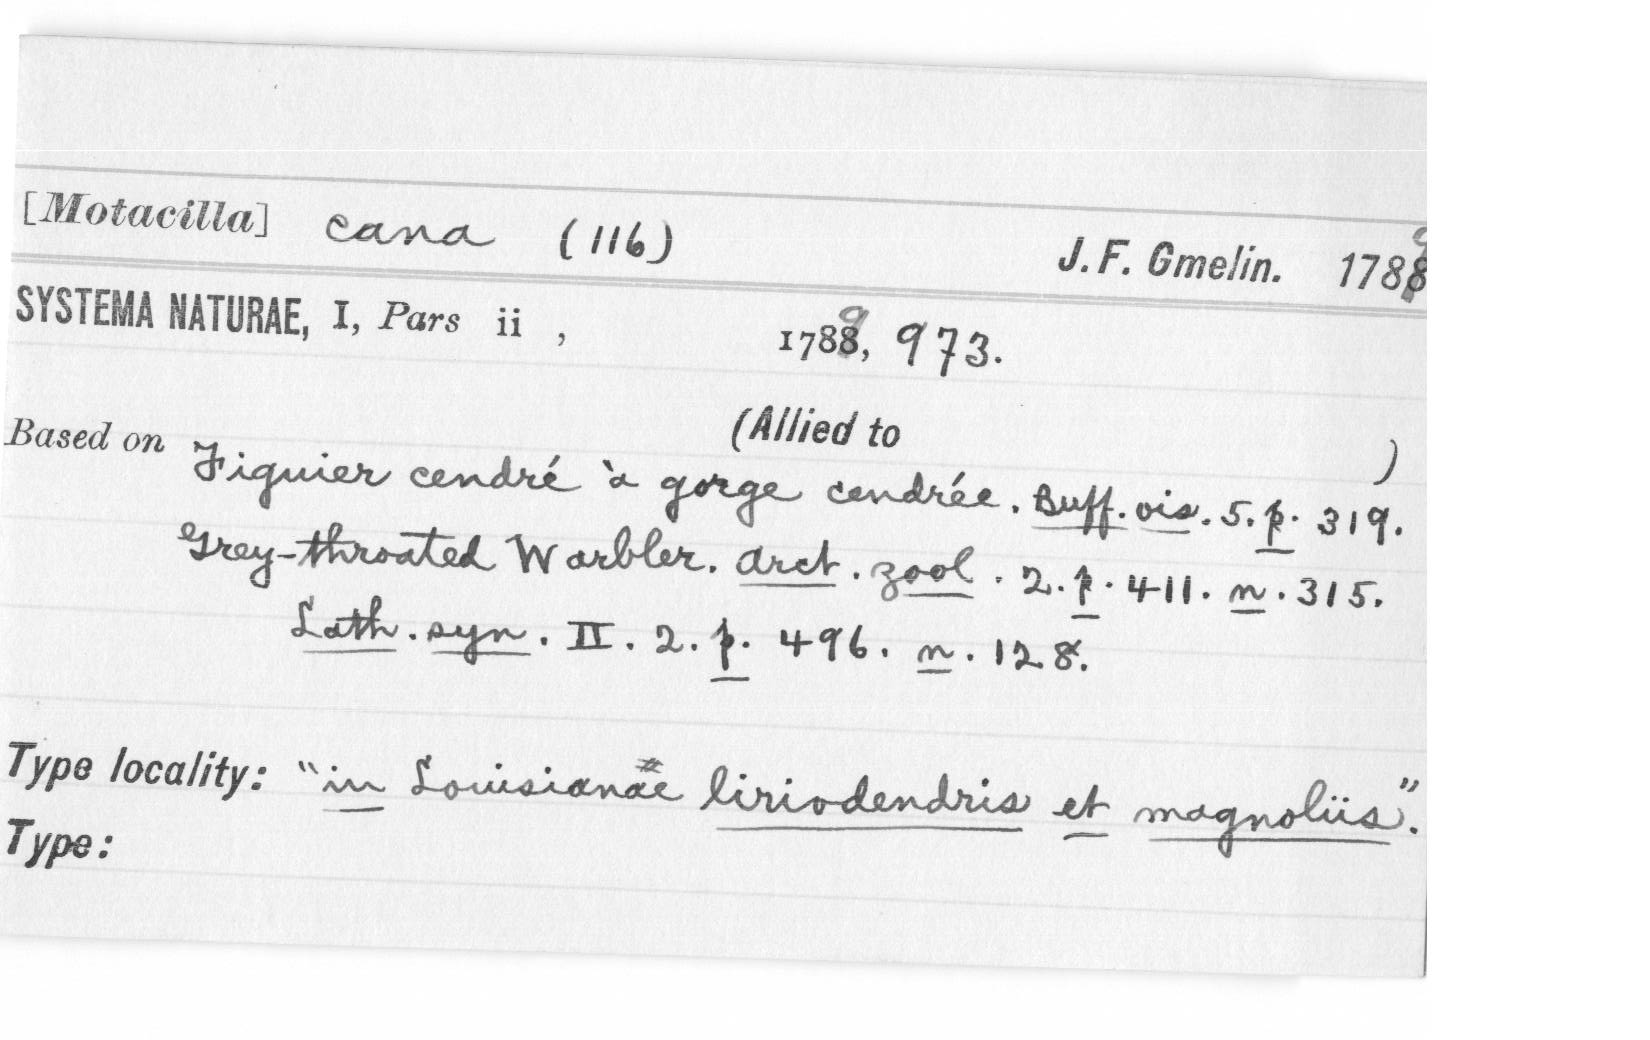 [Motacilla] cana (116) J.F. Gmelin. 1789
SYSTEMA NATURAE, I, Pars ii , 1789, 973.
(Allied to )
Based on Figuier cendré à gorge cendrée. Buff. ois. 5. p. 319.
Grey-throated Warbler. Arct. zool. 2. p. 411. n. 315.
Lath. syn. II. 2. p. 496. n. 128.
Type locality: "in Louisianæ# liriodendris et magnoliis".
Type: